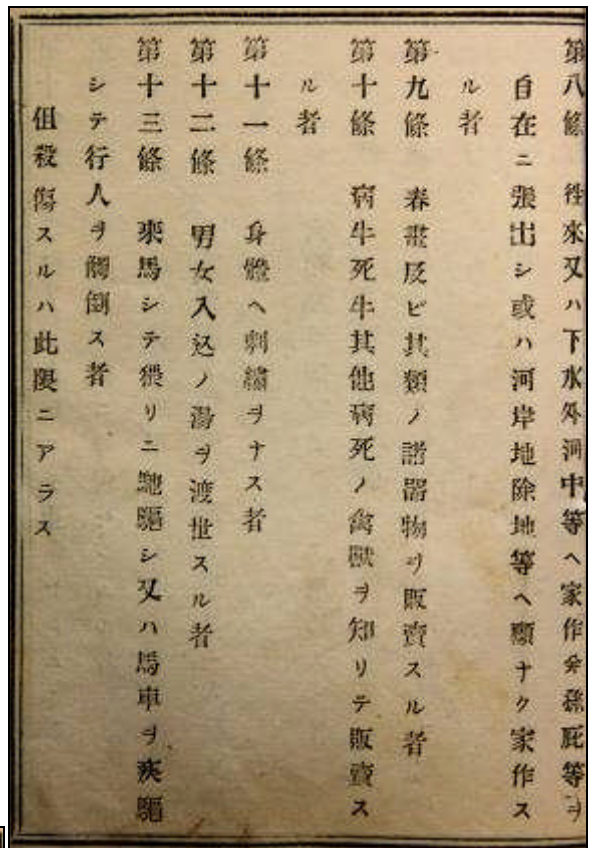 第八條 徃來又ハ下水外河中等ヘ家作并孫庇等ヲ
自在ニ張出シ或ハ河岸地除地等ヘ願ナク家作ス
ル者
第九條 春畫及ビ其類ノ諸器物ヲ販賣スル者
第十條 病牛死牛其他病死ノ禽獸ヲ知リテ販賣ス
ル者
第十一條 身體ヘ刺繡ヲナス者
第十二條 男女入込ノ湯ヲ渡世スル者
第十三條 乘馬シテ猥リニ馳驅シ又ハ馬車ヲ疾驅
シテ行人ヲ觸倒ス者
伹殺傷スルハ此限ニアラス